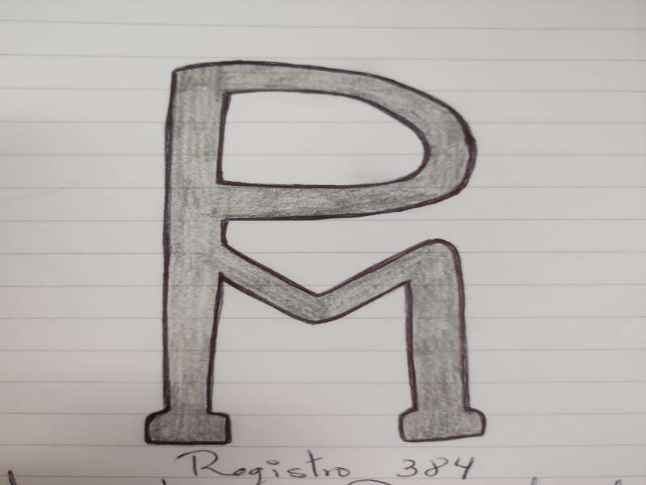 PM
Registro 384